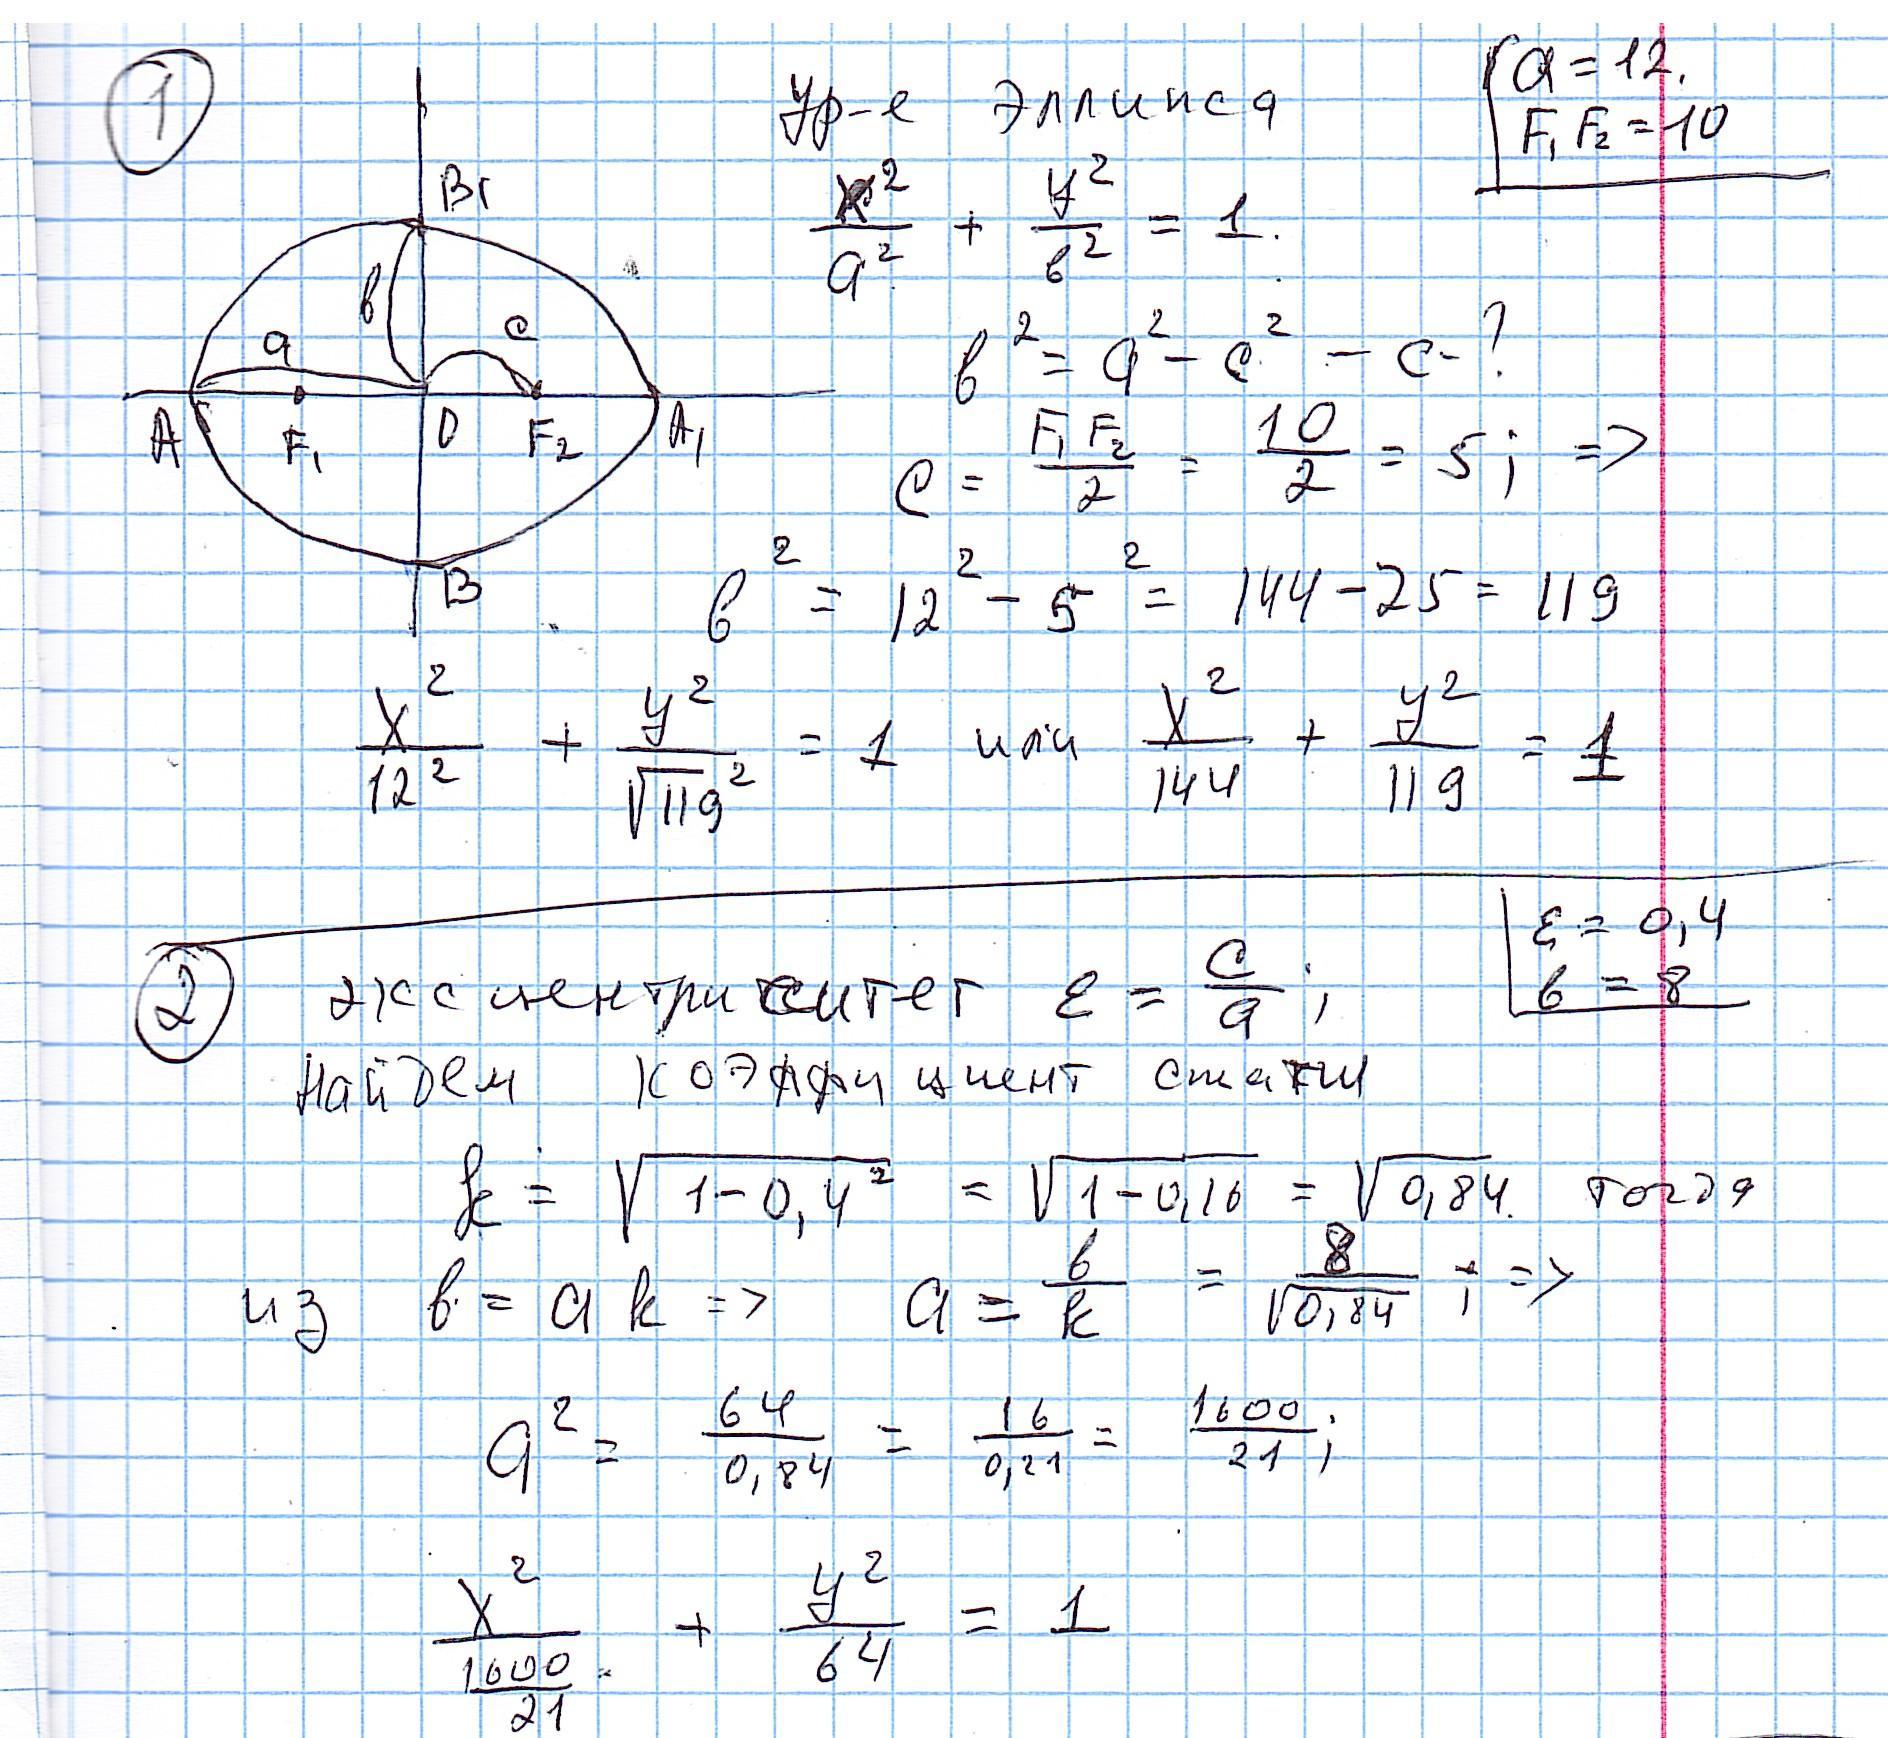 1
Ур-е эллипса
a = 12.
F₁ F₂ = 10
x²/a² + y²/в² = 1.
B₁
в
a
c
A F₁ O F₂ A₁
B
в² = a² - c² - c - ?
c = F₁ F₂/2 = 10/2 = 5; =>
в² = 12² - 5² = 144 - 25 = 119
x²/12² + y²/√119² = 1 или x²/144 + y²/119 = 1
2
эксцентриситет ε = c/a;
ε = 0,4
в = 8
Найдем коэффициент сжатия
k = √(1-0,4²) = √(1-0,16) = √0,84. тогда
из в = a k => a = в/k = 8/√0,84 ; =>
a² = 64/0,84 = 16/0,21 = 1600/21;
x²/(1600/21) + y²/64 = 1